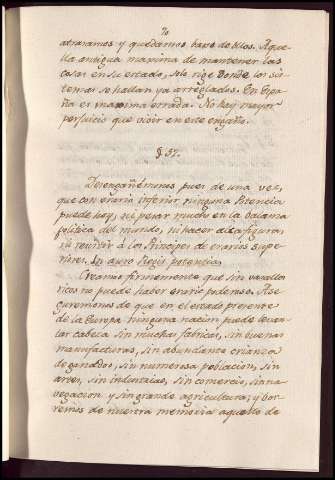 70
atrasamos y quedamos baxo de ellos. Aque
lla antigua maxima de mantener las
cosas en su estado, solo rige donde los sis
temas se hallan ya arreglados. En Espa
ña es maxima errada. No hay mayor
perjuicio que vivir en este engaño.
§ 57.
Desengañémonos pues de una vez,
que con erario inferior ninguna Potencia
puede hoy, ni pesar mucho en la balanza
politica del mundo, ni hacer alta figura,
ni resistir á los Principes de erarios supe
riores. In auro Regis potentia.
Creamos firmemente que sin vasallos
ricos no puede haber erario poderoso. Ase
guremonos de que en el estado presente
de la Europa ninguna nacion puede levan
tar cabeza sin muchas fabricas, sin buenas
manufacturas, sin abundante crianza
de ganados, sin numerosa poblacion, sin
artes, sin industrias, sin comercio, sin na
vegacion y sin grande agricultura; y bor
remos de nuestra memoria aquello de